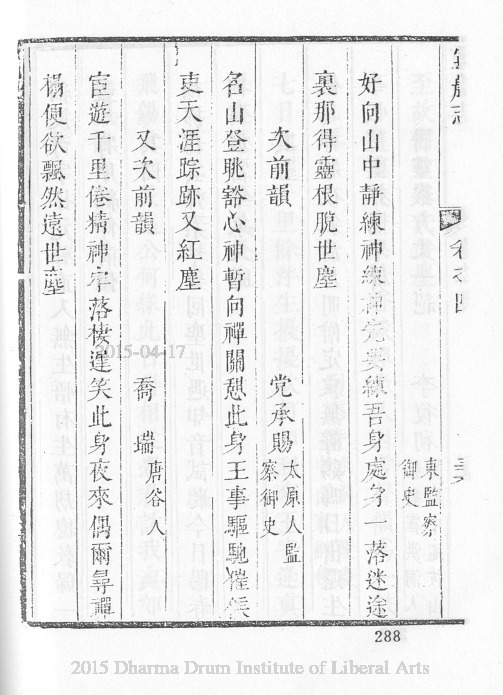 卷之四
東監察
御史
好向山中靜練神練神完要練吾身處身一落迷途
裏那得靈根脫世塵
次前韻 党承賜 太原人監
察御史
名山登眺豁心神暫向禪關憩此身王事驅馳催候
吏天涯踪跡又紅塵
又次前韻 喬瑞 唐谷人
宦遊千里倦精神牢落棲遲笑此身夜來偶爾尋禪
榻便欲飄然遠世塵
2015-04-17
288
2015 Dharma Drum Institute of Liberal Arts